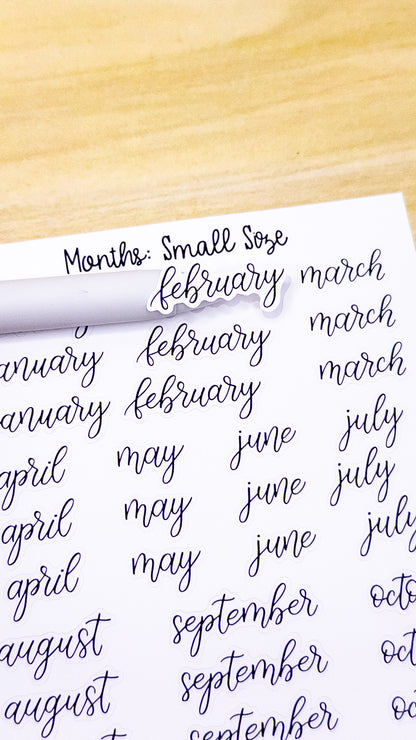 Months: Small Size
february march
anuary february march
anuary february march
april may june july
april may june july
april may june july
august september octo
august september oct
september oc